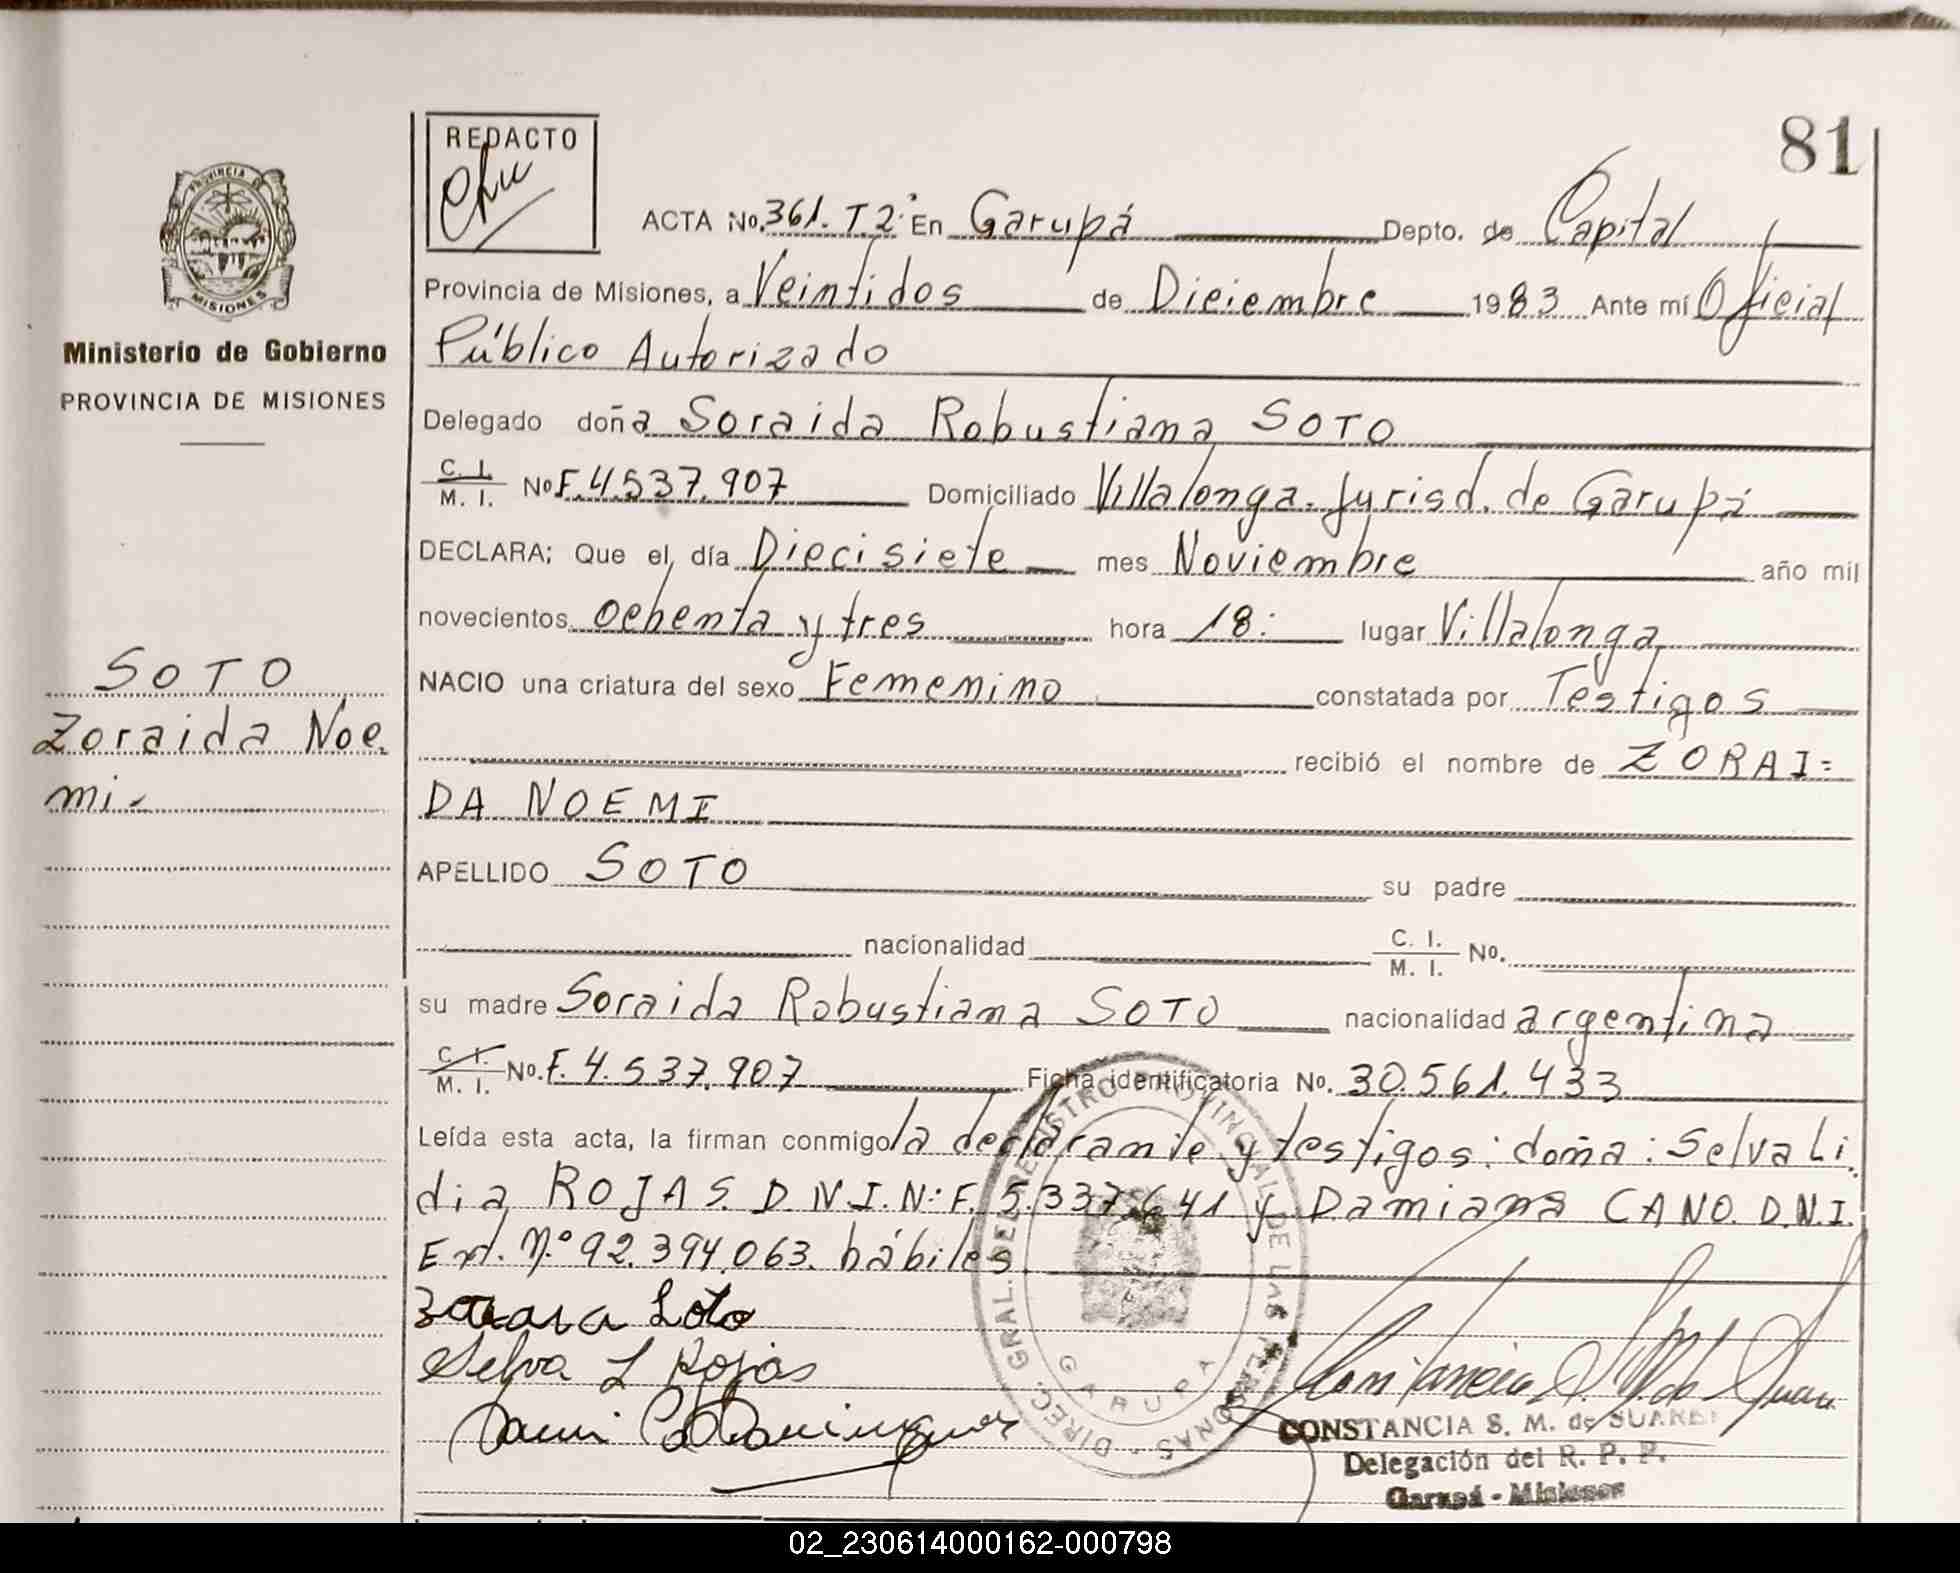 81
REDACTO
PROVINCIA DE
MISIONES
Ministerio de Gobierno
PROVINCIA DE MISIONES
SOTO
Zoraida Noe
mi-
ACTA No. 361. T2º En Garupá Depto. de Capital
Provincia de Misiones, a Veintidos de Diciembre 1983 Ante mí Oficial
Público Autorizado
Delegado doña Soraida Robustiana SOTO
C. I. / M. I. No F. 4.537.907 Domiciliado Villalonga. Jurisd. de Garupá
DECLARA; Que el día Diecisiete mes Noviembre año mil
novecientos ochenta y tres hora 18: lugar Villalonga
NACIO una criatura del sexo Femenino constatada por Testigos
recibió el nombre de ZORAI=
DA NOEMI
APELLIDO SOTO su padre
nacionalidad C. I. / M. I. No.
su madre Soraida Robustiana SOTO nacionalidad argentina
C. I. / M. I. No. F. 4.537.907 Ficha identificatoria No. 30.561.433
Leída esta acta, la firman conmigo la declarante y testigos: doña: Selva Li
dia ROJAS. D.N.I. Nº F. 5.337.641 y Damiana CANO. D.N.I.
Ext. Nº 92.394.063. hábiles
Soto
Selva L Rojas
DIREC. GRAL. DEL REGISTRO PROVINCIAL DE LAS PERSONAS
GARUPA
CONSTANCIA S. M. de SUAREZ
Delegación del R. P. P.
Garupá - Misiones
02_230614000162-000798